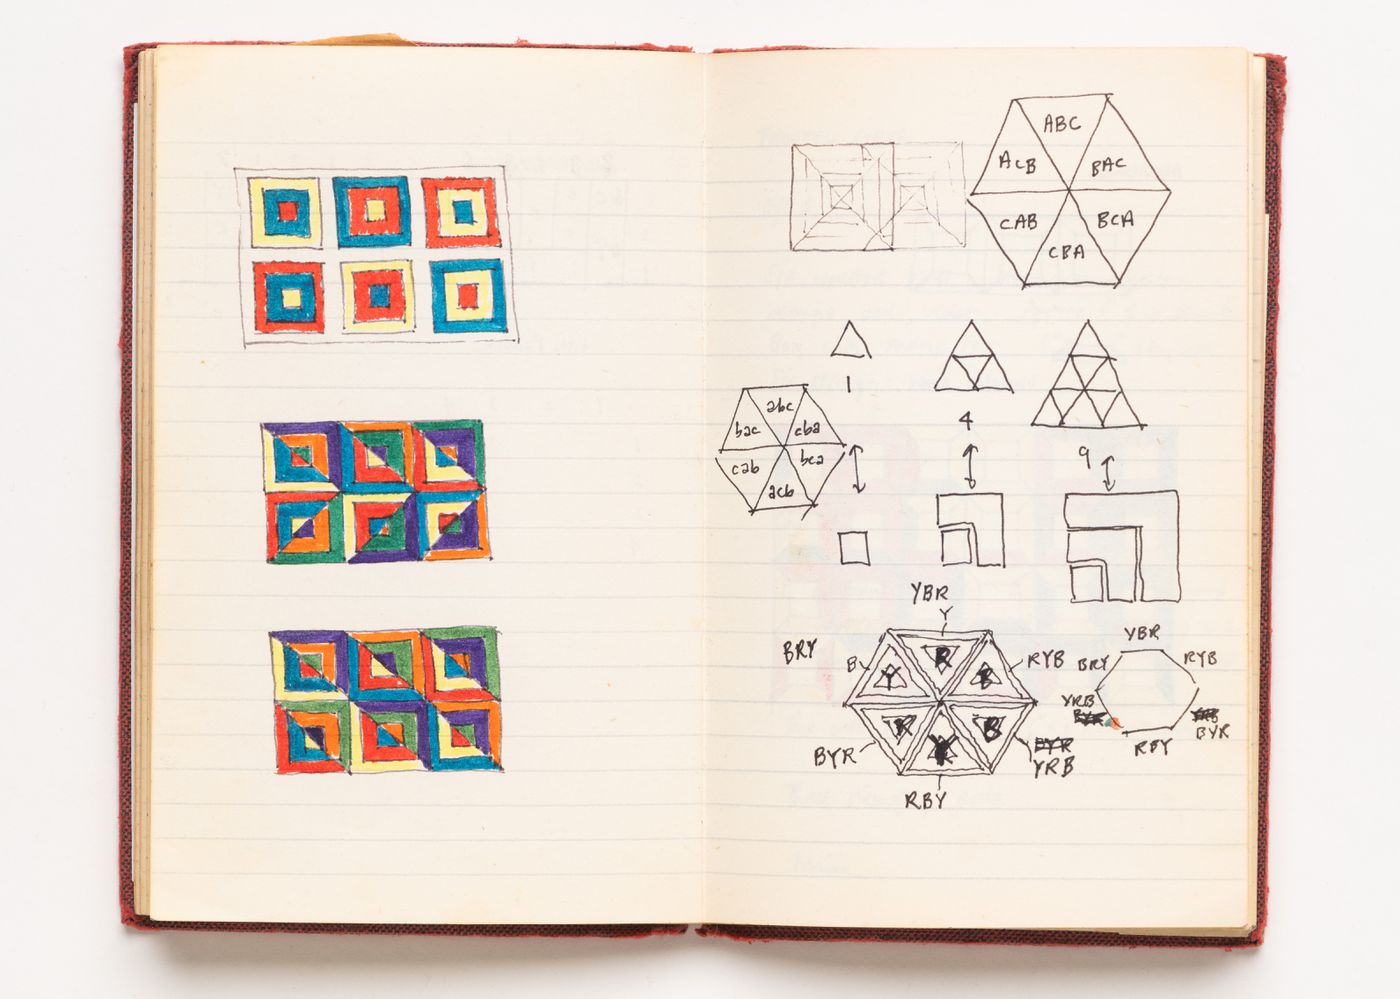 ABC
ACB
BAC
CAB
BCA
CBA
1
4
9
abc
bac
cba
cab
bca
acb
YBR
Y
BRY
B
RYB
R
Y
B
R
B
Y
BYR
BYR
YRB
RBY
YBR
BRY
RYB
YRB
BYR
RBY